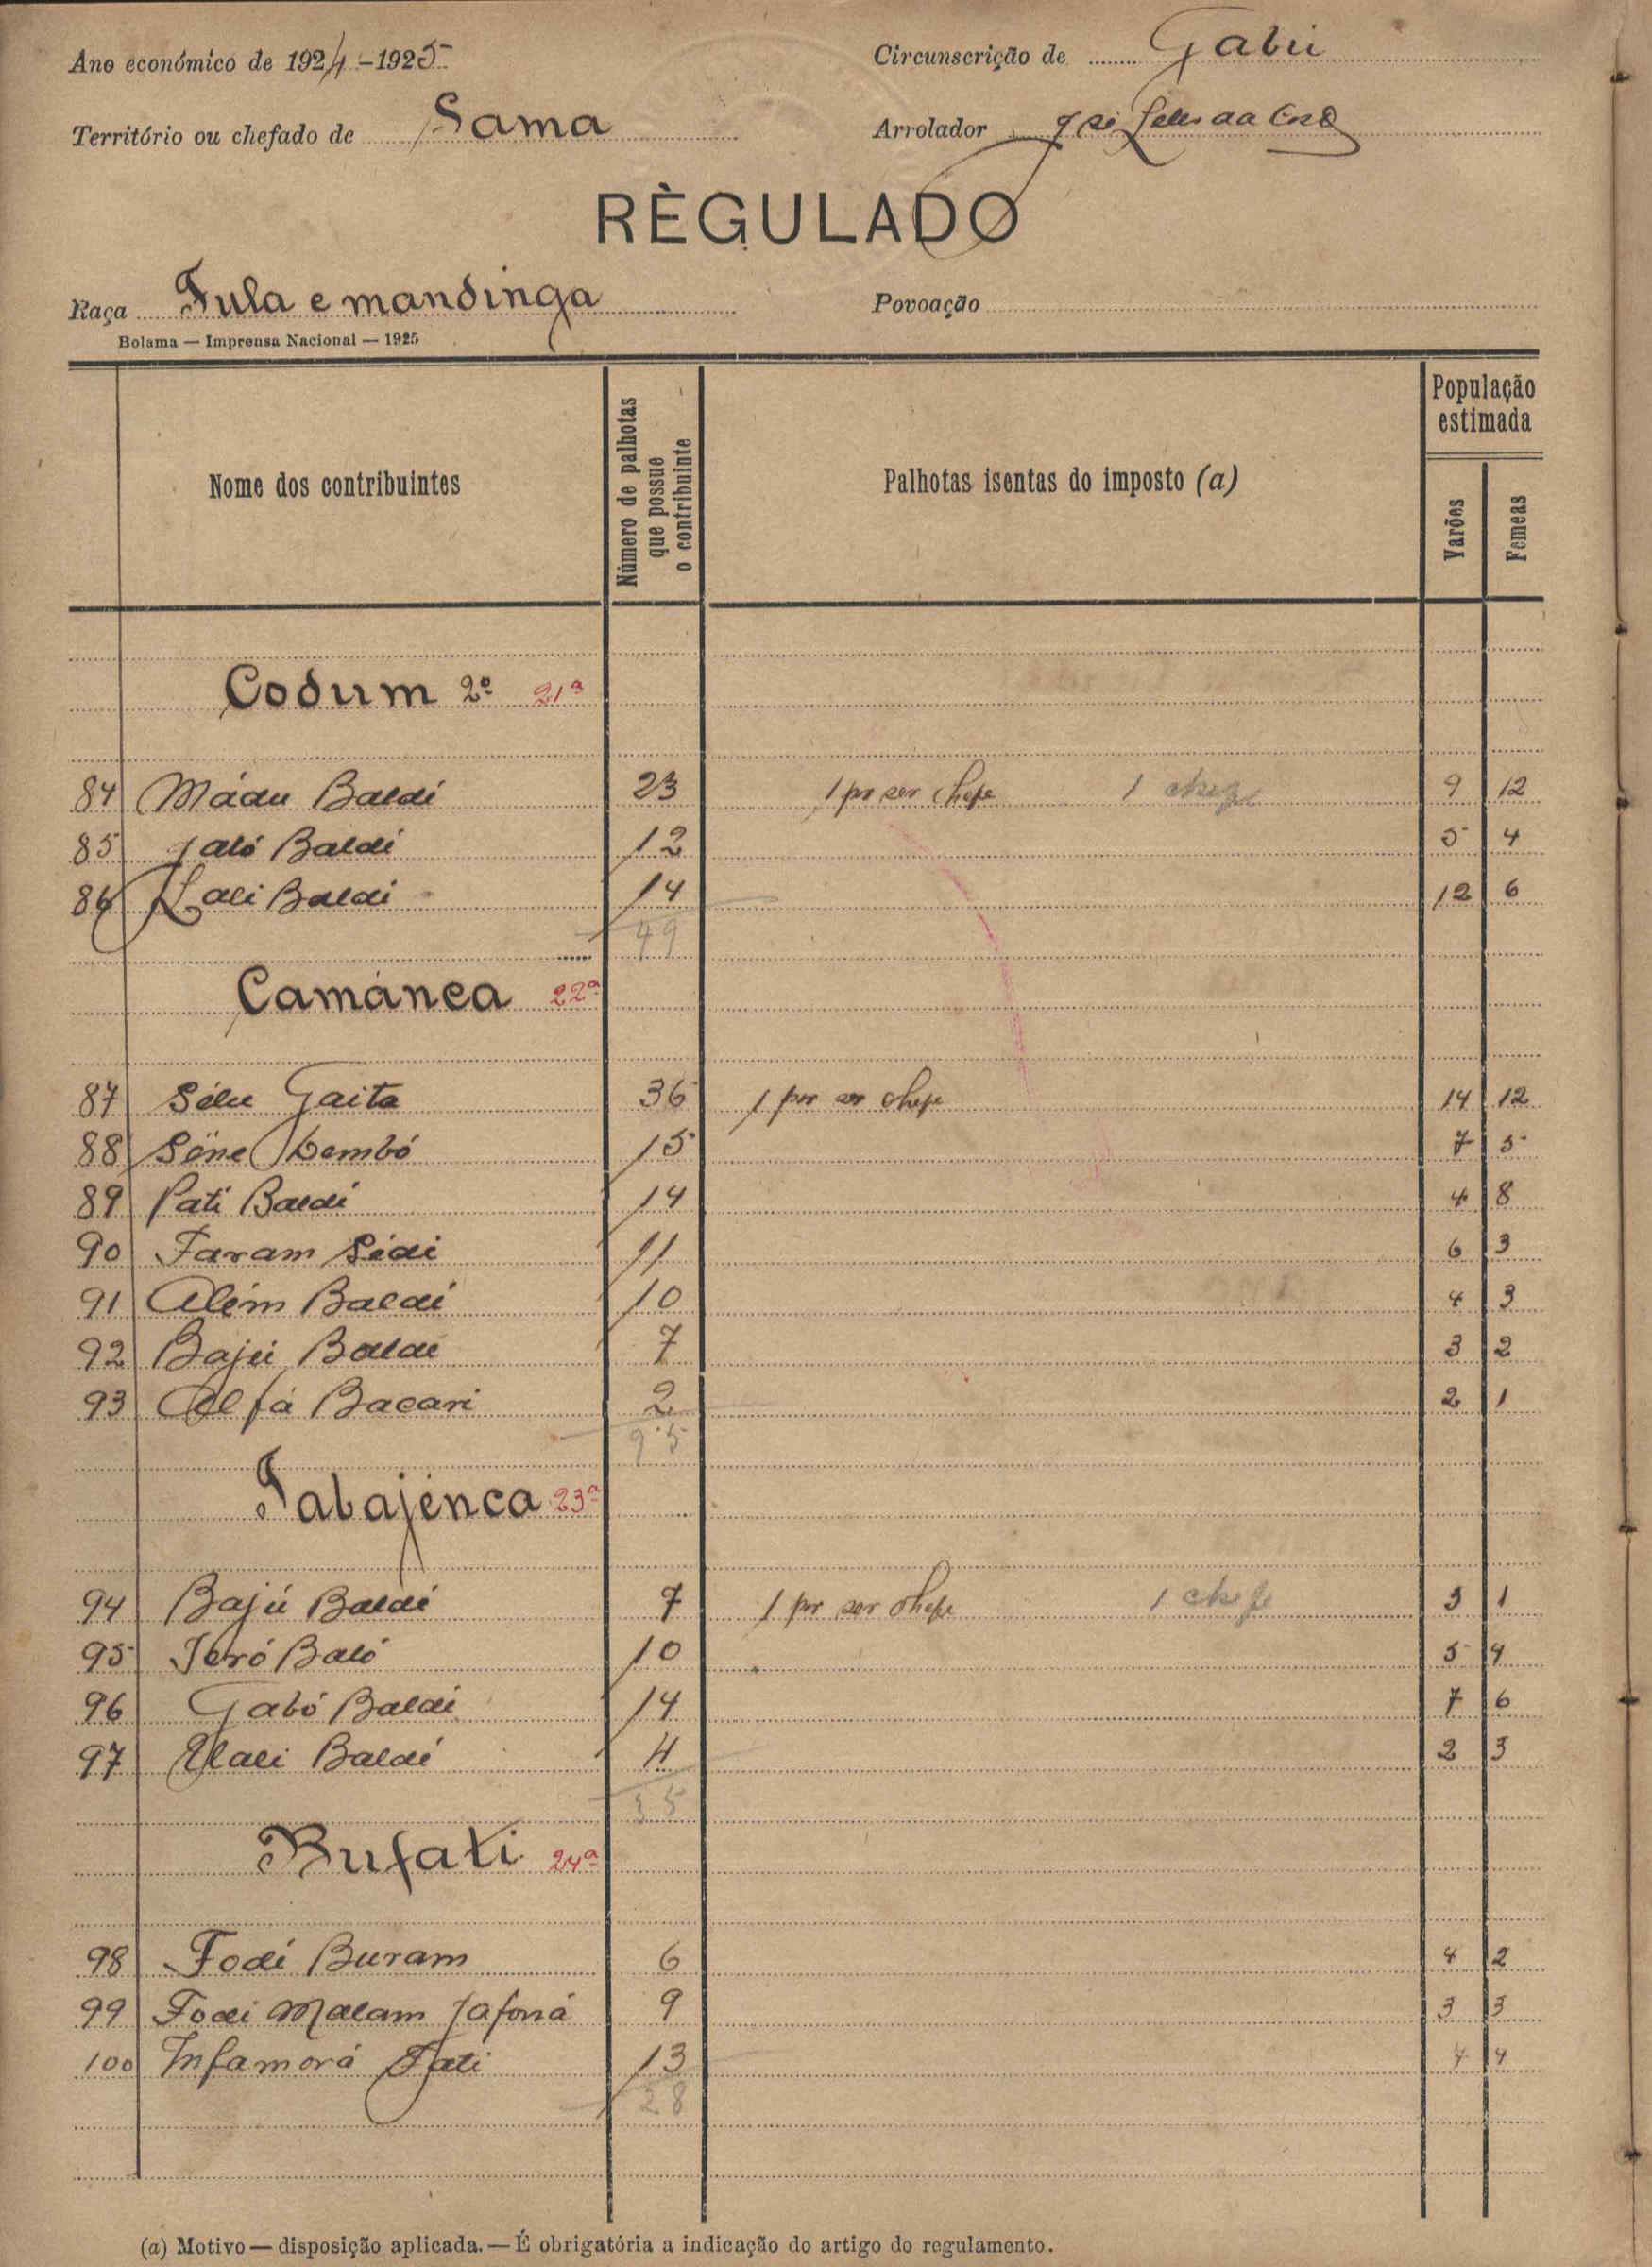 Ano económico de 1924-1925
Circunscrição de Gabú
Território ou chefado de Sama
Arrolador
RÈGULADO
Raça Fula e mandinga
Povoação
Bolama — Imprensa Nacional — 1925
Nome dos contribuintes
Número de palhotas que possue o contribuinte
Palhotas isentas do imposto (a)
População estimada
Varões
Femeas
Codum 2º 21ª
84 Mádu Baldé 23 1 por ser chefe 1 chefe 9 12
85 Jaló Baldé 12 5 4
86 Lali Baldé 14 12 6
49
Camánca 22ª
87 Sélu Gaita 36 1 por ser chefe 14 12
88 Sene Cembó 15 7 5
89 Pati Baldé 14 4 8
90 Faram Sidi 11 6 3
91 Além Baldé 10 4 3
92 Bajú Baldé 7 3 2
93 Alfá Bacari 2 2 1
95
Tabajénca 23ª
94 Bajú Baldé 7 1 por ser chefe 1 chefe 3 1
95 Iéró Baló 10 5 4
96 Gabó Baldé 14 7 6
97 Ulali Baldé 4 2 3
35
Bufati 24ª
98 Fodé Buram 6 4 2
99 Fodi Malam Jafoná 9 3 3
100 Infamorá Fati 13 4 4
28
(a) Motivo — disposição aplicada. — É obrigatória a indicação do artigo do regulamento.